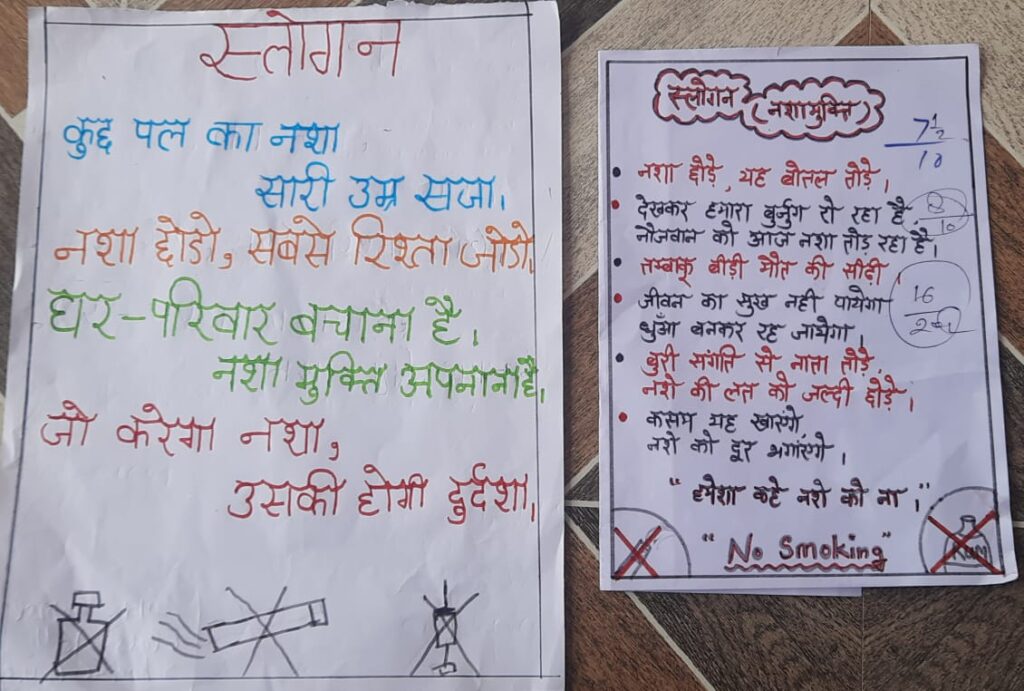 स्लोगन
कुछ पल का नशा
सारी उम्र सजा।
नशा छोडो, सबसे रिश्ता जोडो।
घर-परिवार बचाना है।
नशा मुक्ति अपनाना है।
जो करेगा नशा,
उसकी होगी दुर्दशा।
स्लोगन (नशा मुक्ति)
7 1/2
10
• नशा छोड़े, यह बोतल तोड़े।
• देखकर हमारा बुर्जुग रो रहा है
नौजवान को आज नशा तोड़ रहा है।
8
10
• तम्बाकू बीड़ी मौत की सीढ़ी।
• जीवन का सुख नही पायेगा
धुँआ बनकर रह जायेगा।
16
• बुरी संगति से नाता तोड़े,
नशे की लत को जल्दी छोड़े।
• कसम यह खाएंगे
नशे को दूर भगाएंगे।
"हमेशा कहे नशे को ना।"
"No Smoking"
RUM